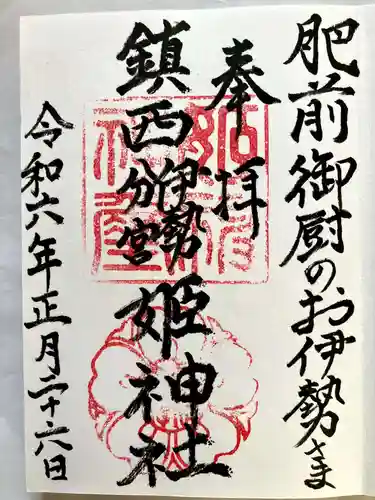 肥前御厨のお伊勢さま
奉拝
鎮西分宮伊勢姫神社
令和六年正月二十六日